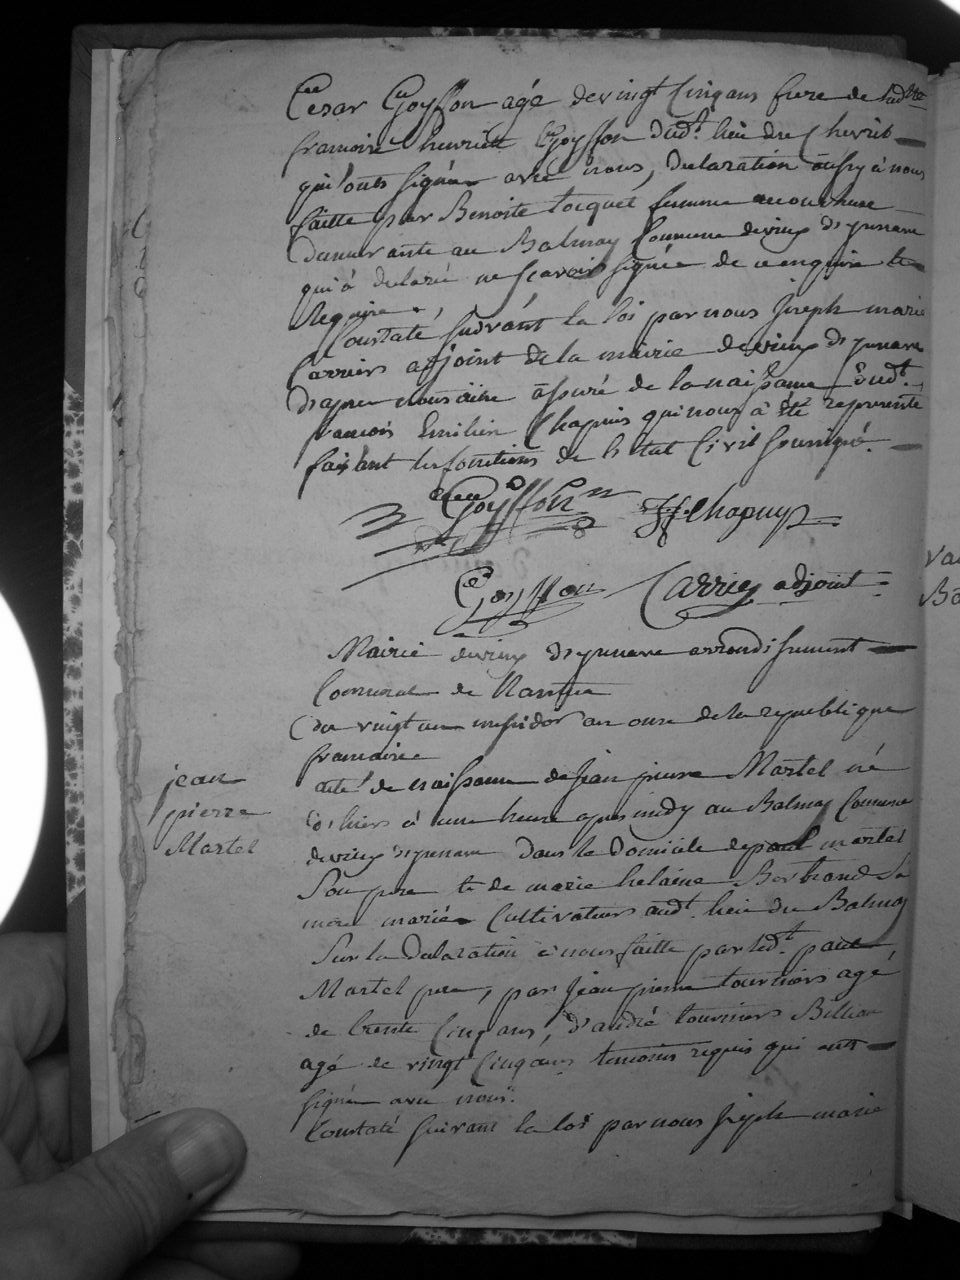 César Goyffon agé de vingt Cinq ans frere de ladtte
francoise henriett Goyffon dudt. lieu de Chevril
qui onts signée avec nous, declaration aussy à nous
faitte par Benoite tocquet femme accoucheuse
demeurante au Balmay Commune de vieux d'yzenave
qui à declaré ne scavoir signée de ce enquise et
Requise.
Constaté, suivant la loi par nous joseph marie
Carrier adjoint de la mairie de vieux d'yzenave
d'apres nous être assuré de la naissance dudt.
francois Emilien Chapuis qui nous à été representé
faisant les fonctions de l'Etat Civil soussigné.
Goyffon
JF Chapuys
Goyffon Carrier adjoint
Mairie de vieux d'yzenave arrondissement
Communal de Nantua
Du vingt un messidor an onze de la republique
francaise
acte de naissance de jean pierre Martel né
hiers à une heure apres midy au Balmay Commune
de vieux d'yzenave dans le domicile de paul martel
Son pere et de marie helaine Bertrand Sa
mere mariée Cultivateurs audt. lieu du Balmay
Sur la declaration à nous faitte par ledt. paul
Martel pere, par jean pierre tourniers agé
de trente Cinq ans, d'andré tourniers Billion
agé de vingt Cinq ans temoins requis qui onts
signée avec nous.
Constaté suivant la loi par nous joseph marie
jean
pierre
Martel